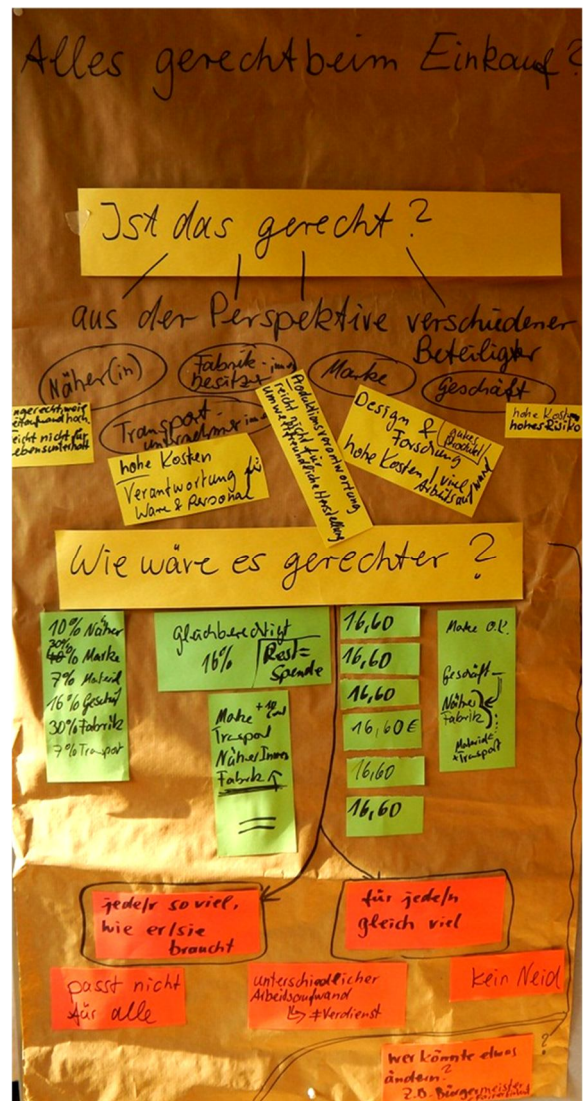 Alles gerecht beim Einkauf?
Ist das gerecht?
aus der Perspektive verschiedener
Beteiligter
Näher(in)
Fabrik-
besitzer
Marke
Geschäft
Transport-
unternehmer
ungerecht, weil
reicht nicht für
Lebensunterhalt
hohe Kosten
Verantwortung für
Ware & Personal
Produktionsverantwortung
reicht nicht für
umweltfreundliche Herstellung
Design &
Forschung
gutes
Produkt
hohe Kosten / viel
Arbeitsaufwand
hohe Kosten
hohes Risiko
Wie wäre es gerechter?
10% Näher
30%
% Marke
7% Material
16% Geschäft
30% Fabrik
7% Transport
gleichberechtigt
16%
Rest =
Spende
Marke
Transport
NäherInnen
Fabrik
16,60
16,60
16,60
16,60€
16,60
16,60
Marke O.K.
Geschäft
Näher
Fabrik
Material
Transport
jede/r so viel,
wie er/sie
braucht
für jede/n
gleich viel
passt nicht
für alle
unterschiedlicher
Arbeitsaufwand
↳ ≠ Verdienst
kein Neid
wer könnte etwas
ändern?
z.B. Bürgermeister
?